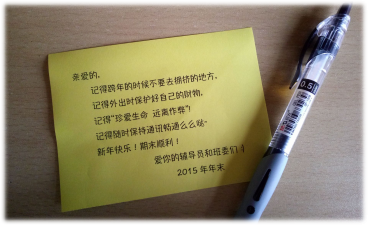 亲爱的，
记得跨年的时候不要去拥挤的地方，
记得外出时保护好自己的财物，
记得"珍爱生命 远离作弊"！
记得随时保持通讯畅通么么哒~
新年快乐！期末顺利！
爱你的辅导员和班委们
2015 年年末
0.5